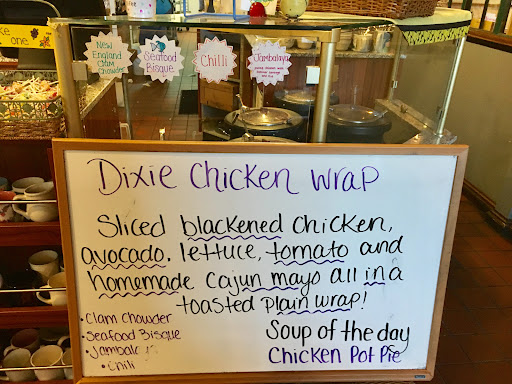 ake one
New
England
Clam
Chowder
Seafood
Bisque
Chilli
Jambalaya
Dixie Chicken Wrap
Sliced blackened chicken,
avocado, lettuce, tomato and
homemade Cajun mayo all in a
toasted plain wrap!
• Clam Chowder
• Seafood Bisque
• Jambala
• Chili
Soup of the day
Chicken Pot Pie